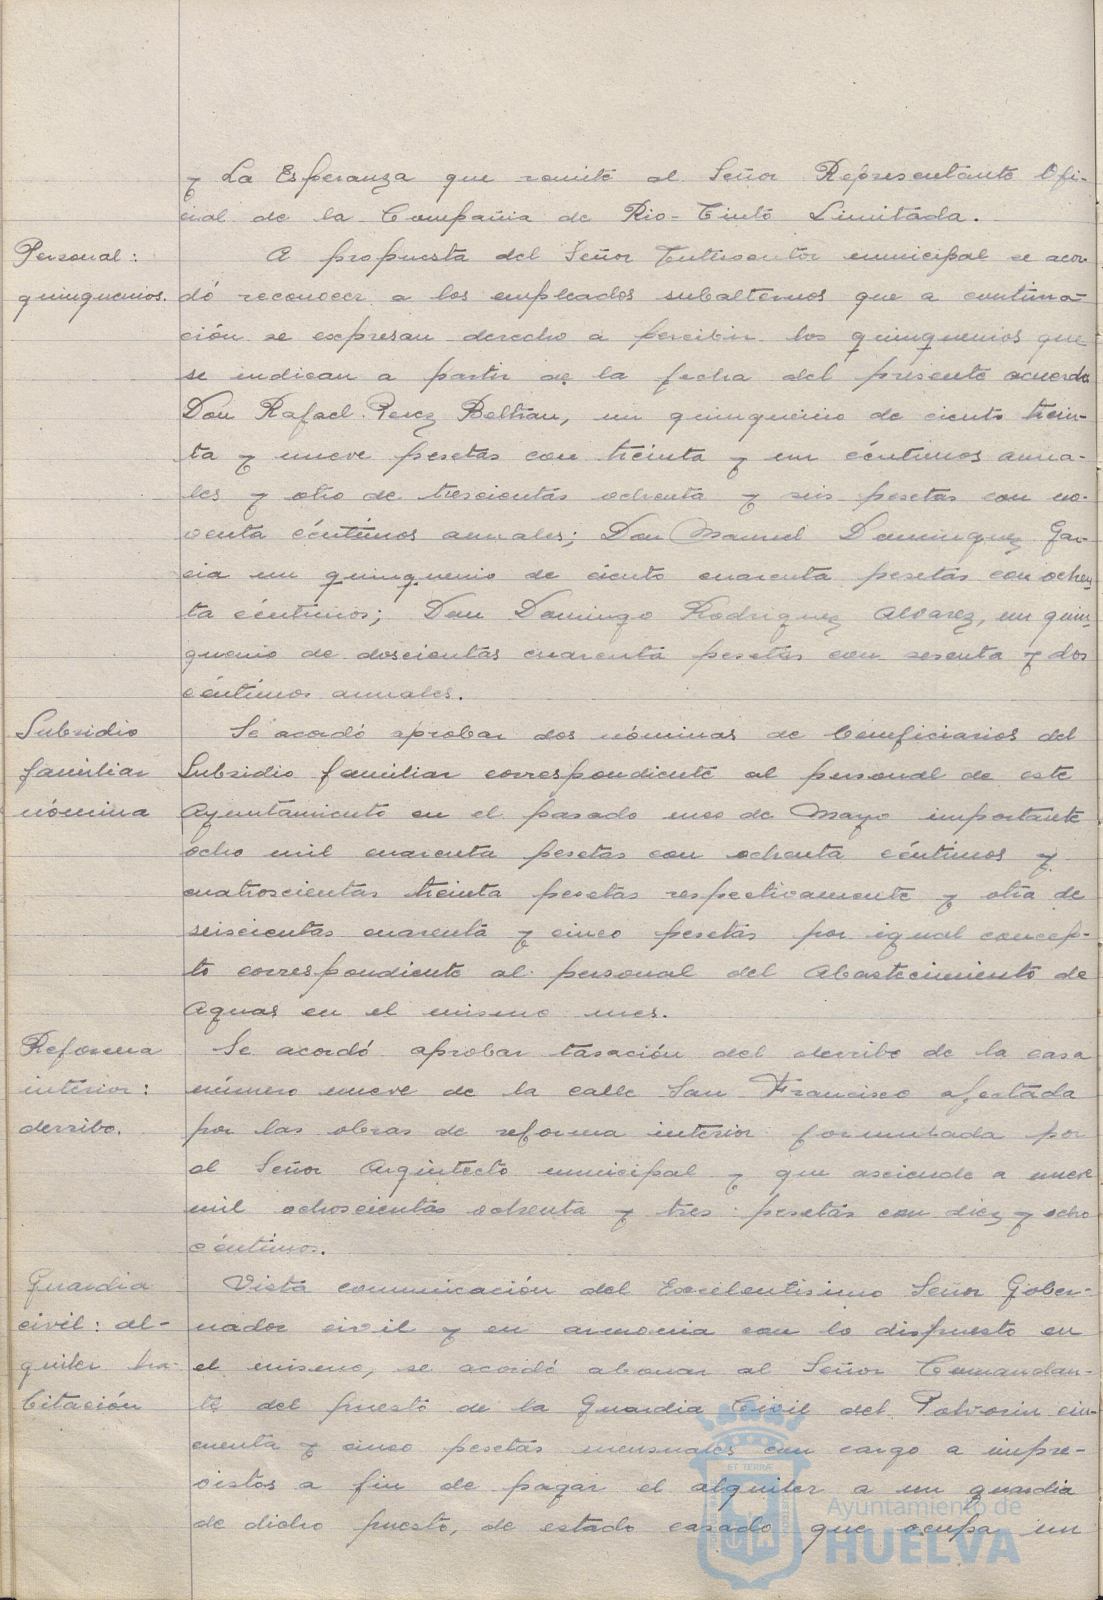 y La Esperanza que remite al Señor Representante Ofi-
cial de la Compañia de Rio-Tinto Limitada.
Personal:
quinquenios.
A propuesta del Señor Interventor municipal se acor
dó reconocer a los empleados subalternos que a continua-
ción se expresan derecho a percibir los quinquenios que
se indican a partir de la fecha del presente acuerdo
Don Rafael Perez Beltran, un quinquenio de ciento trein-
ta y nueve pesetas con treinta y un céntimos anua-
les y otro de trescientas ochenta y seis pesetas con no-
venta céntimos anuales; Don Manuel Dominguez Gar-
cia un quinquenio de ciento cuarenta pesetas con ochen
ta céntimos; Don Domingo Rodriguez Alvarez, un quin-
quenio de doscientas cuarenta pesetas con sesenta y dos
céntimos anuales.
Subsidio
familiar
nómina
Se acordó aprobar dos nóminas de beneficiarios del
Subsidio familiar correspondiente al personal de este
Ayuntamiento en el pasado mes de Mayo importante
ocho mil cuarenta pesetas con ochenta céntimos y
cuatroscientas treinta pesetas respectivamente y otra de
seiscientas cuarenta y cinco pesetas por igual concep-
to correspondiente al personal del Abastecimiento de
Aguas en el mismo mes.
Reforma
interior:
derribo.
Se acordó aprobar tasación del derribo de la casa
número nueve de la calle San Francisco afectada
por las obras de reforma interior formulada por
el Señor Arqintecto municipal y que asciende a nueve
mil ochoscientas ochenta y tres pesetas con diez y ocho
céntimos.
Guardia
civil: al-
quiler ha-
bitación
Vista comunicación del Excelentisimo Señor Gober-
nador civil y en armonia con lo dispuesto en
el mismo, se acordó abonar al Señor Comandan-
te del puesto de la Guardia Civil del Polvorin cin-
cuenta y cinco pesetas mensuales con cargo a impre-
vistos a fin de pagar el alquiler a un guardia
de dicho puesto, de estado casado que ocupa un
Ayuntamiento de
HUELVA